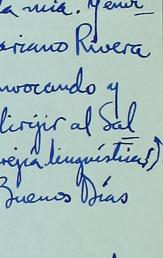 la mia. Y en
ariano Rivera
nvocando y
dirijir al Sal
rejía lingüística!)
Buenos Días